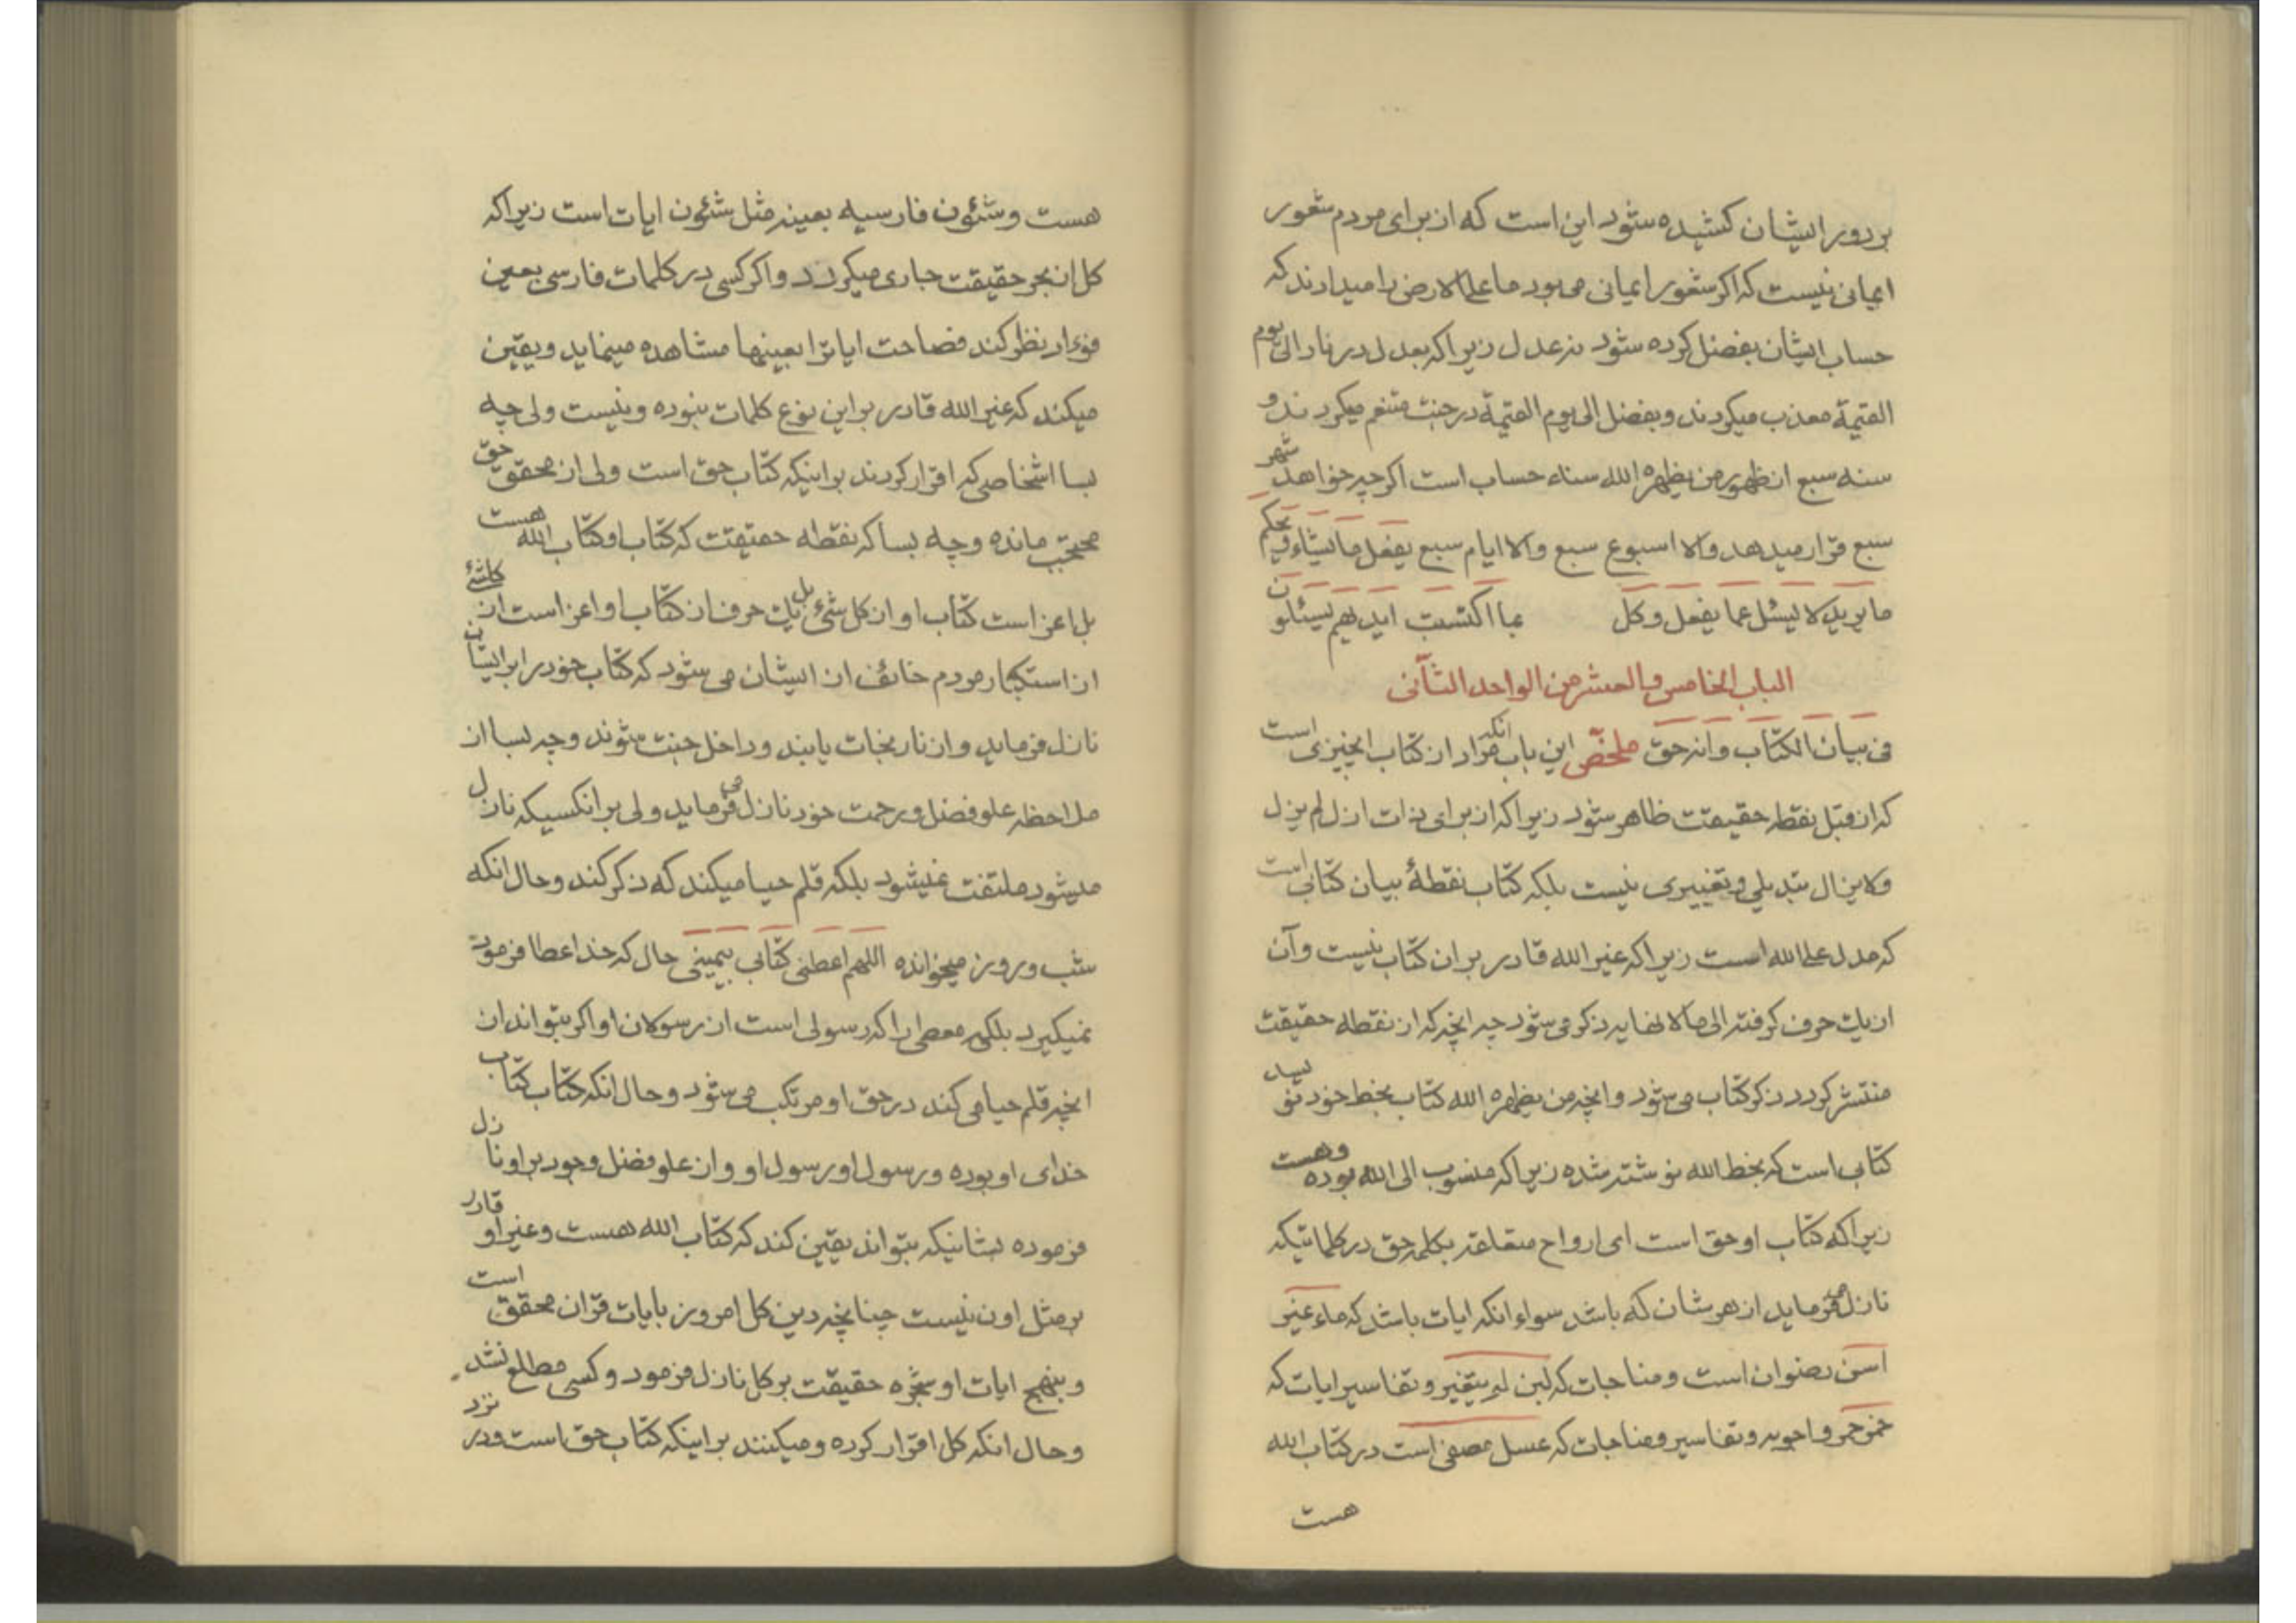 بر روز ایشان کشیده شود این است که از برای مردم شعور
ایمانی نیست که اگر شعور ایمانی می بود ما علی الارض را میدارند که
حساب ایشان بفضل کرده شود نه عدل زیرا که بعدل در نار الی یوم
القیمة معذب میگردند و بفضل الی یوم القیمة در جنت متنعم میگردند و
سنه سبع از ظهور من یظهره الله سناء حساب است اگر چه خواهد شهر
سبع قرار میدهد والا اسبوع سبع والا ایام سبع یفعل ما یشاء و یحکم
ما یرید لا یسئل عما یفعل و کل عما اکتسبت ایدیهم یسئلون
الباب الخامس و العشر من الواحد الثانی
فی بیان الکتاب و انه حق ملخص این باب انکه مراد از کتاب انچیزی است
که از قبل نقطه حقیقت ظاهر شود زیرا که از برای ذات ازل لم یزل
ولا یزال تبدیلی و تغییری نیست بلکه کتاب نقطهٔ بیان کتابی است
که مدل علی الله است زیرا که غیر الله قادر بر ان کتاب نیست و آن
از یک حرف گرفته الی ما لا نهایه ذکر می شود چه انچه که از نقطه حقیقت
منتشر گردد ذکر کتاب می شود و انچه من یظهره الله کتاب بخط خود نویسد
کتابی است که بخط الله نوشته شده زیرا که منسوب الی الله بوده و هست
زیرا که کتاب او حق است ای ارواح متعلقه بکلمه حق در کلماتیکه
نازل می فرماید از هر شان که باشد سواء انکه ایات باشد که ماء غیر
اسن رضوان است و مناجات که لبن لم یتغیر و تفاسیر ایات که
خمر حمر و اجوبه و تفاسیر و مناجات که عسل مصفی است در کتاب الله
هست
هست و شئون فارسیه بعینه مثل شئون ایات است زیرا که
کل از بحر حقیقت جاری میگردد و اگر کسی در کلمات فارسی بعین
فؤاد نظر کند فصاحت ایات را بعینها مشاهده مینماید و یقین
میکند که غیر الله قادر بر این نوع کلمات نبوده و نیست ولی چه
بسا اشخاصی که اقرار کردند بر اینکه کتاب حق است ولی از محقق حق
محتجب مانده و چه بسا که نقطه حقیقت که کتاب او کتاب الله هست
بل اعز است کتاب او از کل شئ بل یک حرف از کتاب او اعز است از کلشئ
از استکبار مردم خائف از ایشان می شود که کتاب خود را بر ایشان
نازل فرماید و از نار نجات یابند و داخل جنت شوند و چه بسا از
ملاحظه علو فضل و رحمت خود نازل می فرماید ولی بر انکسیکه نازل
میشود ملتفت نمیشود بلکه قلم حیا میکند که ذکر کند و حال انکه
شب و روز میخوانده اللهم اعطنی کتابی بیمینی حال که خدا عطا فرموده
نمیگیرد بلکه معطی را که رسولی است از رسولان او اگر بتواند از
انچه قلم حیا می کند در حق او مرتکب می شود و حال انکه کتاب کتاب
خدای او بوده و رسول او رسول او و از علو فضل وجود بر او نازل
فرموده بشانیکه بتواند یقین کند که کتاب الله هست و غیر او قادر
بر مثل اون نیست چنانچه دین کل امروز بایات قران محقق است
و بنهج ایات او شجره حقیقت بر کل نازل فرمود و کسی مطلع نشد
و حال انکه کل اقرار کرده و میکنند بر اینکه کتاب حق است و در نزد